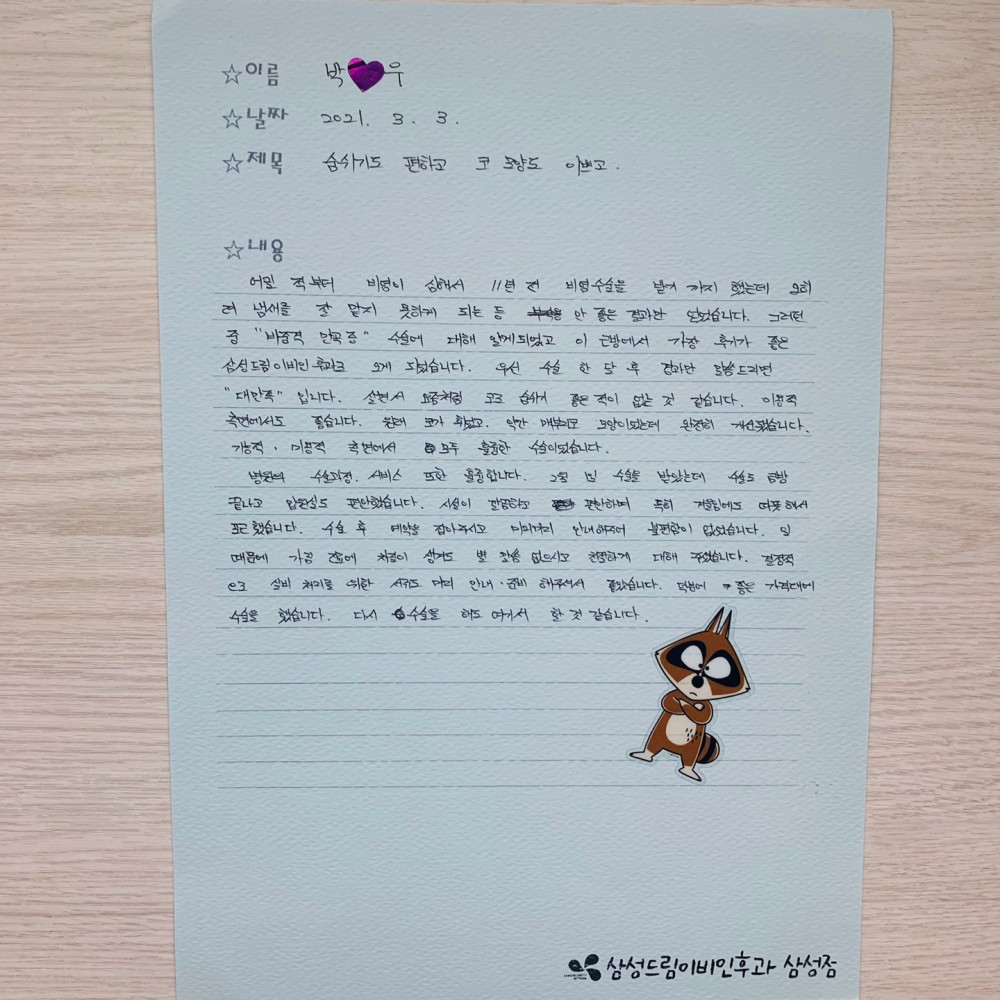 ☆이름 박 우
☆날짜 2021. 3. 3.
☆제목 숨쉬기도 편하고 코 모양도 이쁘고.
☆내용
어릴 적부터 비염이 심해서 11년 전 비염수술을 받기 까지 했는데 오히
려 냄새를 잘 맡지 못하게 되는 등 안 좋은 결과만 얻었습니다. 그러던
중 "비중격 만곡증" 수술에 대해 알게되었고 이 근방에서 가장 후기가 좋은
삼성드림이비인후과로 오게 되었습니다. 우선 수술 한 달 후 결과만 말씀드리면
"대만족" 입니다. 살면서 요즘처럼 코로 숨쉬기 좋은 적이 없는 것 같습니다. 미용적
측면에서도 좋습니다. 원래 코가 휘었고, 약간 매부리코 모양이었는데 완전히 개선됐습니다.
기능적·미용적 측면에서 모두 훌륭한 수술이었습니다.
병원의 수술과정, 서비스 또한 훌륭합니다. 2월 1일 수술을 받았는데 수술도 금방
끝나고 입원실도 편안했습니다. 시설이 깔끔하고 편안하며 특히 겨울임에도 따뜻해서
포근했습니다. 수술 후 예약을 잡아주시고 미리미리 안내해주어 불편함이 없었습니다. 일
때문에 가끔 진료에 차질이 생겨도 별 말씀 없으시고 친절하게 대해 주셨습니다. 결정적
으로 실비 처리를 위한 서류도 미리 안내·준비 해주셔서 좋았습니다. 덕분에 좋은 가격대에
수술을 했습니다. 다시 수술을 해도 여기서 할 것 같습니다.
삼성드림이비인후과 삼성점